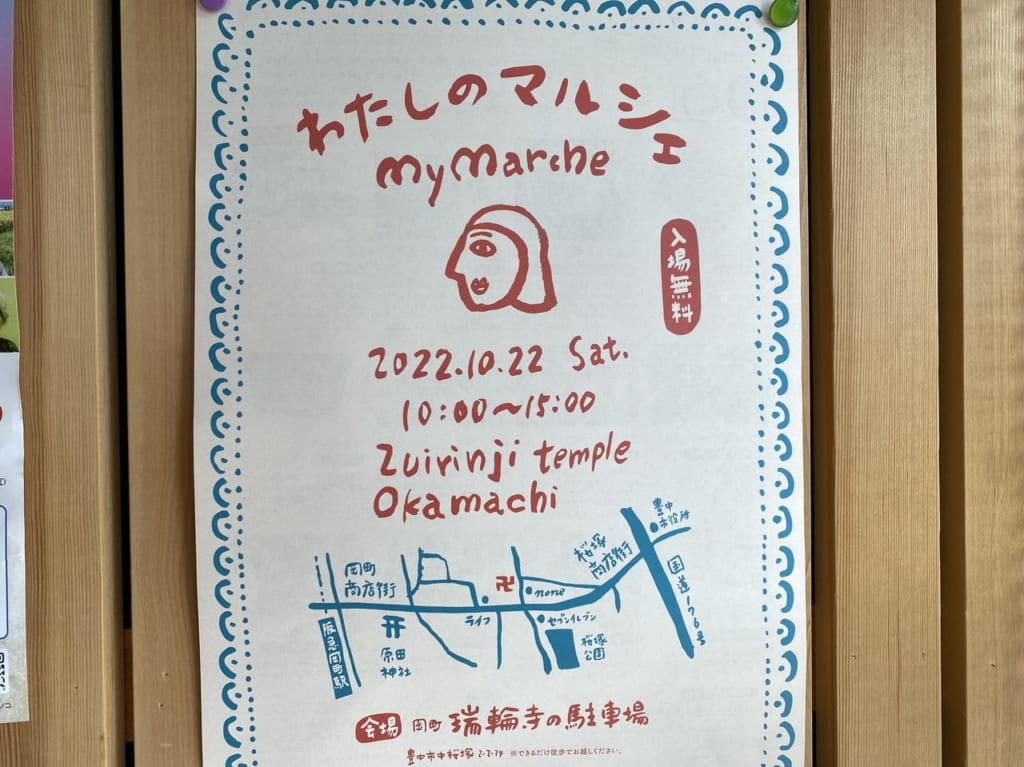 わたしのマルシェ
my marche
入場無料
2022.10.22 Sat.
10:00~15:00
Zuirinji temple
Okamachi
豊中
市役所
桜塚
商店街
国道176号
岡町
商店街
卍
none
ライフ
セブンイレブン
阪急岡町駅
原田
神社
桜塚
公園
会場 岡町 瑞輪寺の駐車場
豊中市中桜塚2-2-24 ※できるだけ徒歩でお越しください。